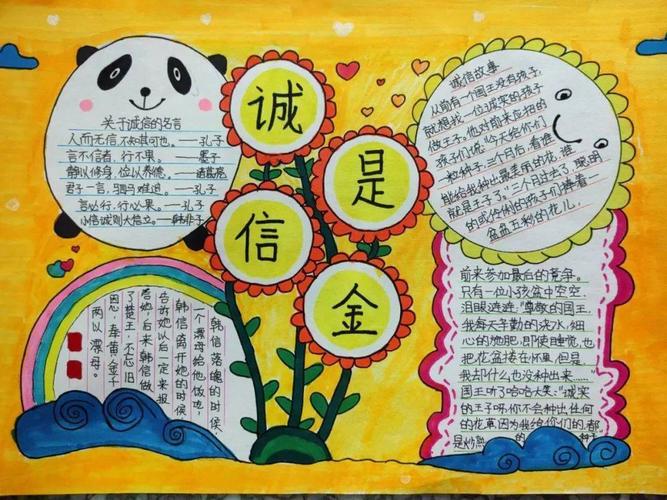 诚
信
是
金
关于诚信的名言
人而无信不知其可也。——孔子
言不信者，行不果。——墨子
静以修身，俭以养德。——诸葛亮
君子一言，驷马难追。——孔子
言必行，行必果。——孔子
小信诚则大信立。——韩非子
诚信故事
从前有一个国王没有孩子，
就想找一位诚实的孩子
做王子。他对前来应招的
孩子们说：“今天给你们
一粒种子，三个月后，看谁
能给我种出最美丽的花，谁
就是王子了。”三个月过去了，聪明
的或伶俐的孩子们捧着一
盆盆五彩的花儿，
前来参加最后的竞争。
只有一位小孩盆中空空，
泪眼涟涟：“尊敬的国王，
我每天辛勤的浇水，细
心的施肥，即使睡觉，也
把花盆搂在怀里，但是
我却什么也没种出来……”
国王听了哈哈大笑：“诚实
的王子呀，你不会种出任何
的花草，因为我给你们的，都
是炒熟的种子
韩信落魄的时候，
一个漂母给他做饭，
韩信离开她的时候
告诉她以后一定来报
答她，后来韩信做
了楚王，不忘旧
恩，奉黄金千
两以漂母。